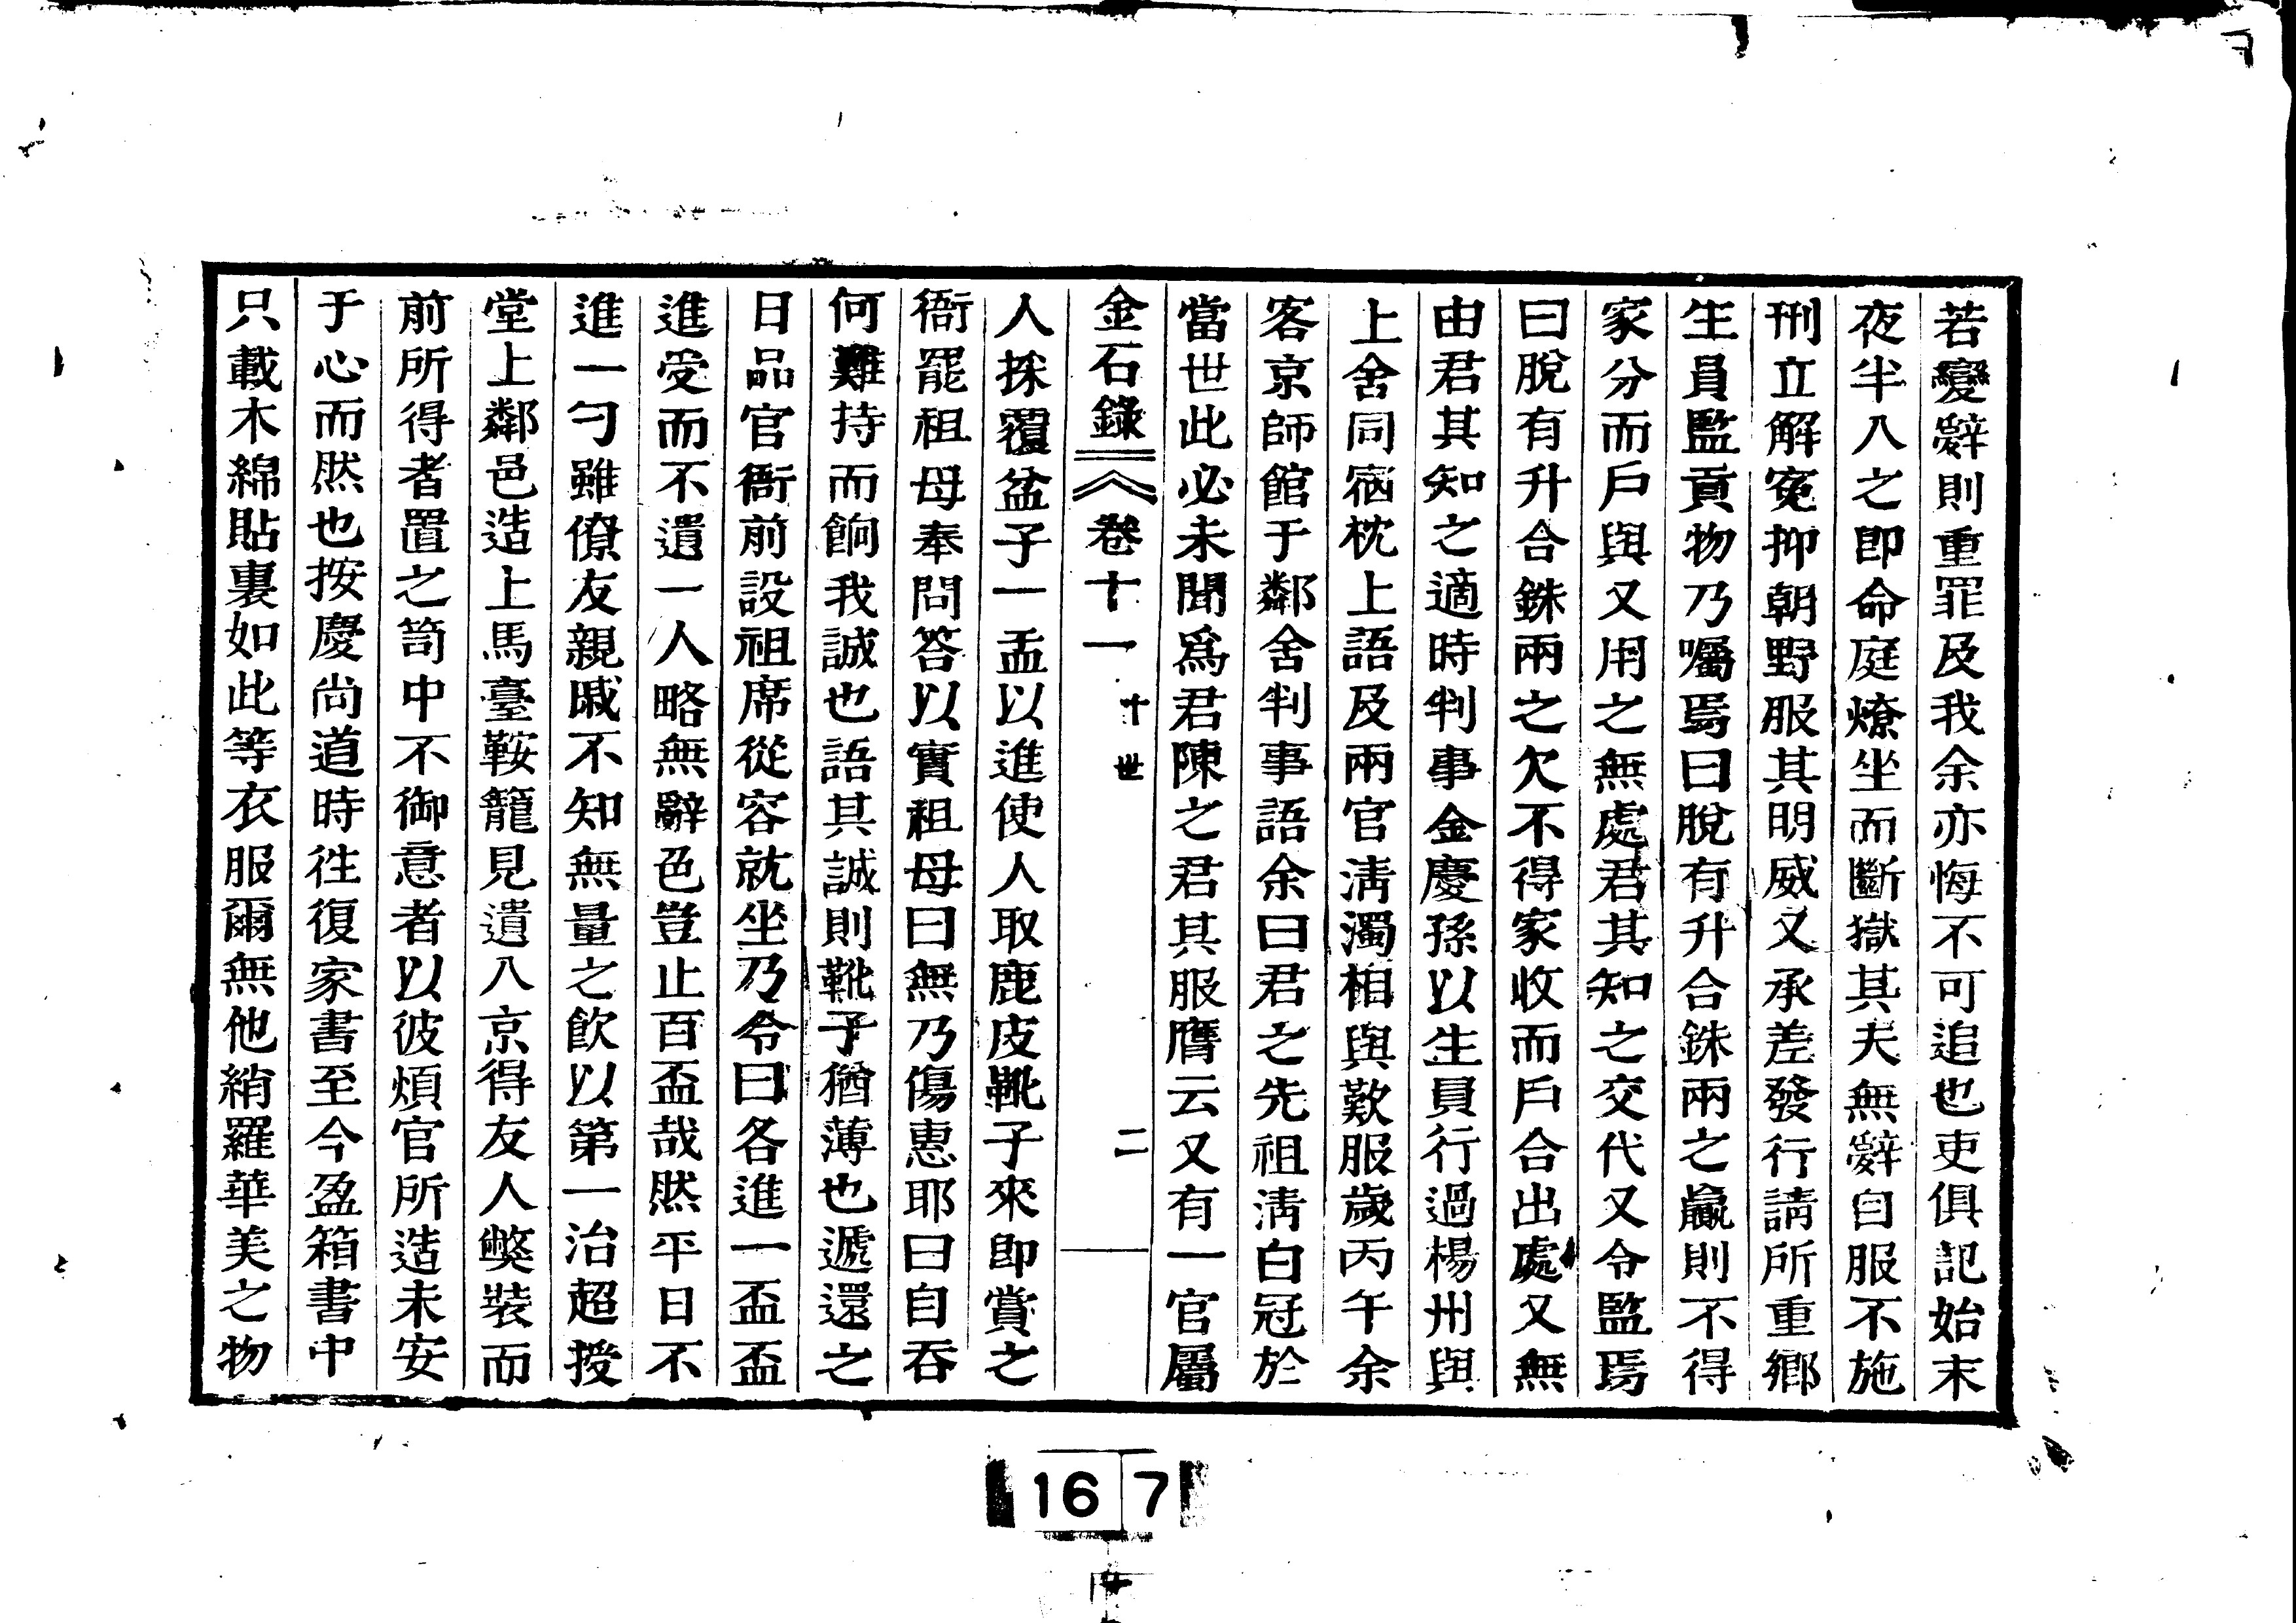 若變辭則重罪及我余亦悔不可追也吏俱記始末
夜半入之卽命庭燎坐而斷獄其夫無辭自服不施
刑立解寃抑朝野服其明威又承差發行請所重鄕
生員監貢物乃囑焉曰脫有升合銖兩之贏則不得
家分而戶與又用之無處君其知之交代又令監焉
曰脫有升合銖兩之欠不得家收而戶合出處又無
由君其知之適時判事金慶孫以生員行過楊州與
上舍同宿枕上語及兩官淸濁相與歎服歲丙午余
客京師館于鄰舍判事語余曰君之先祖淸白冠於
當世此必未聞爲君陳之君其服膺云又有一官屬
金石錄 卷十一 十世 二
人採覆盆子一盂以進使人取鹿皮靴子來卽賞之
衙罷祖母奉問答以實祖母曰無乃傷惠耶曰自吞
何難持而餉我誠也語其誠則靴子猶薄也遞還之
日品官衙前設祖席從容就坐乃令曰各進一盃盃
進受而不遺一人略無辭色豈止百盃哉然平日不
進一勺雖僚友親戚不知無量之飮以第一治超授
堂上鄰邑造上馬臺鞍籠見遺入京得友人獘裝而
前所得者置之笥中不御意者以彼煩官所造未安
于心而然也按慶尙道時徃復家書至今盈箱書中
只載木綿貼裏如此等衣服爾無他綃羅華美之物
16 7